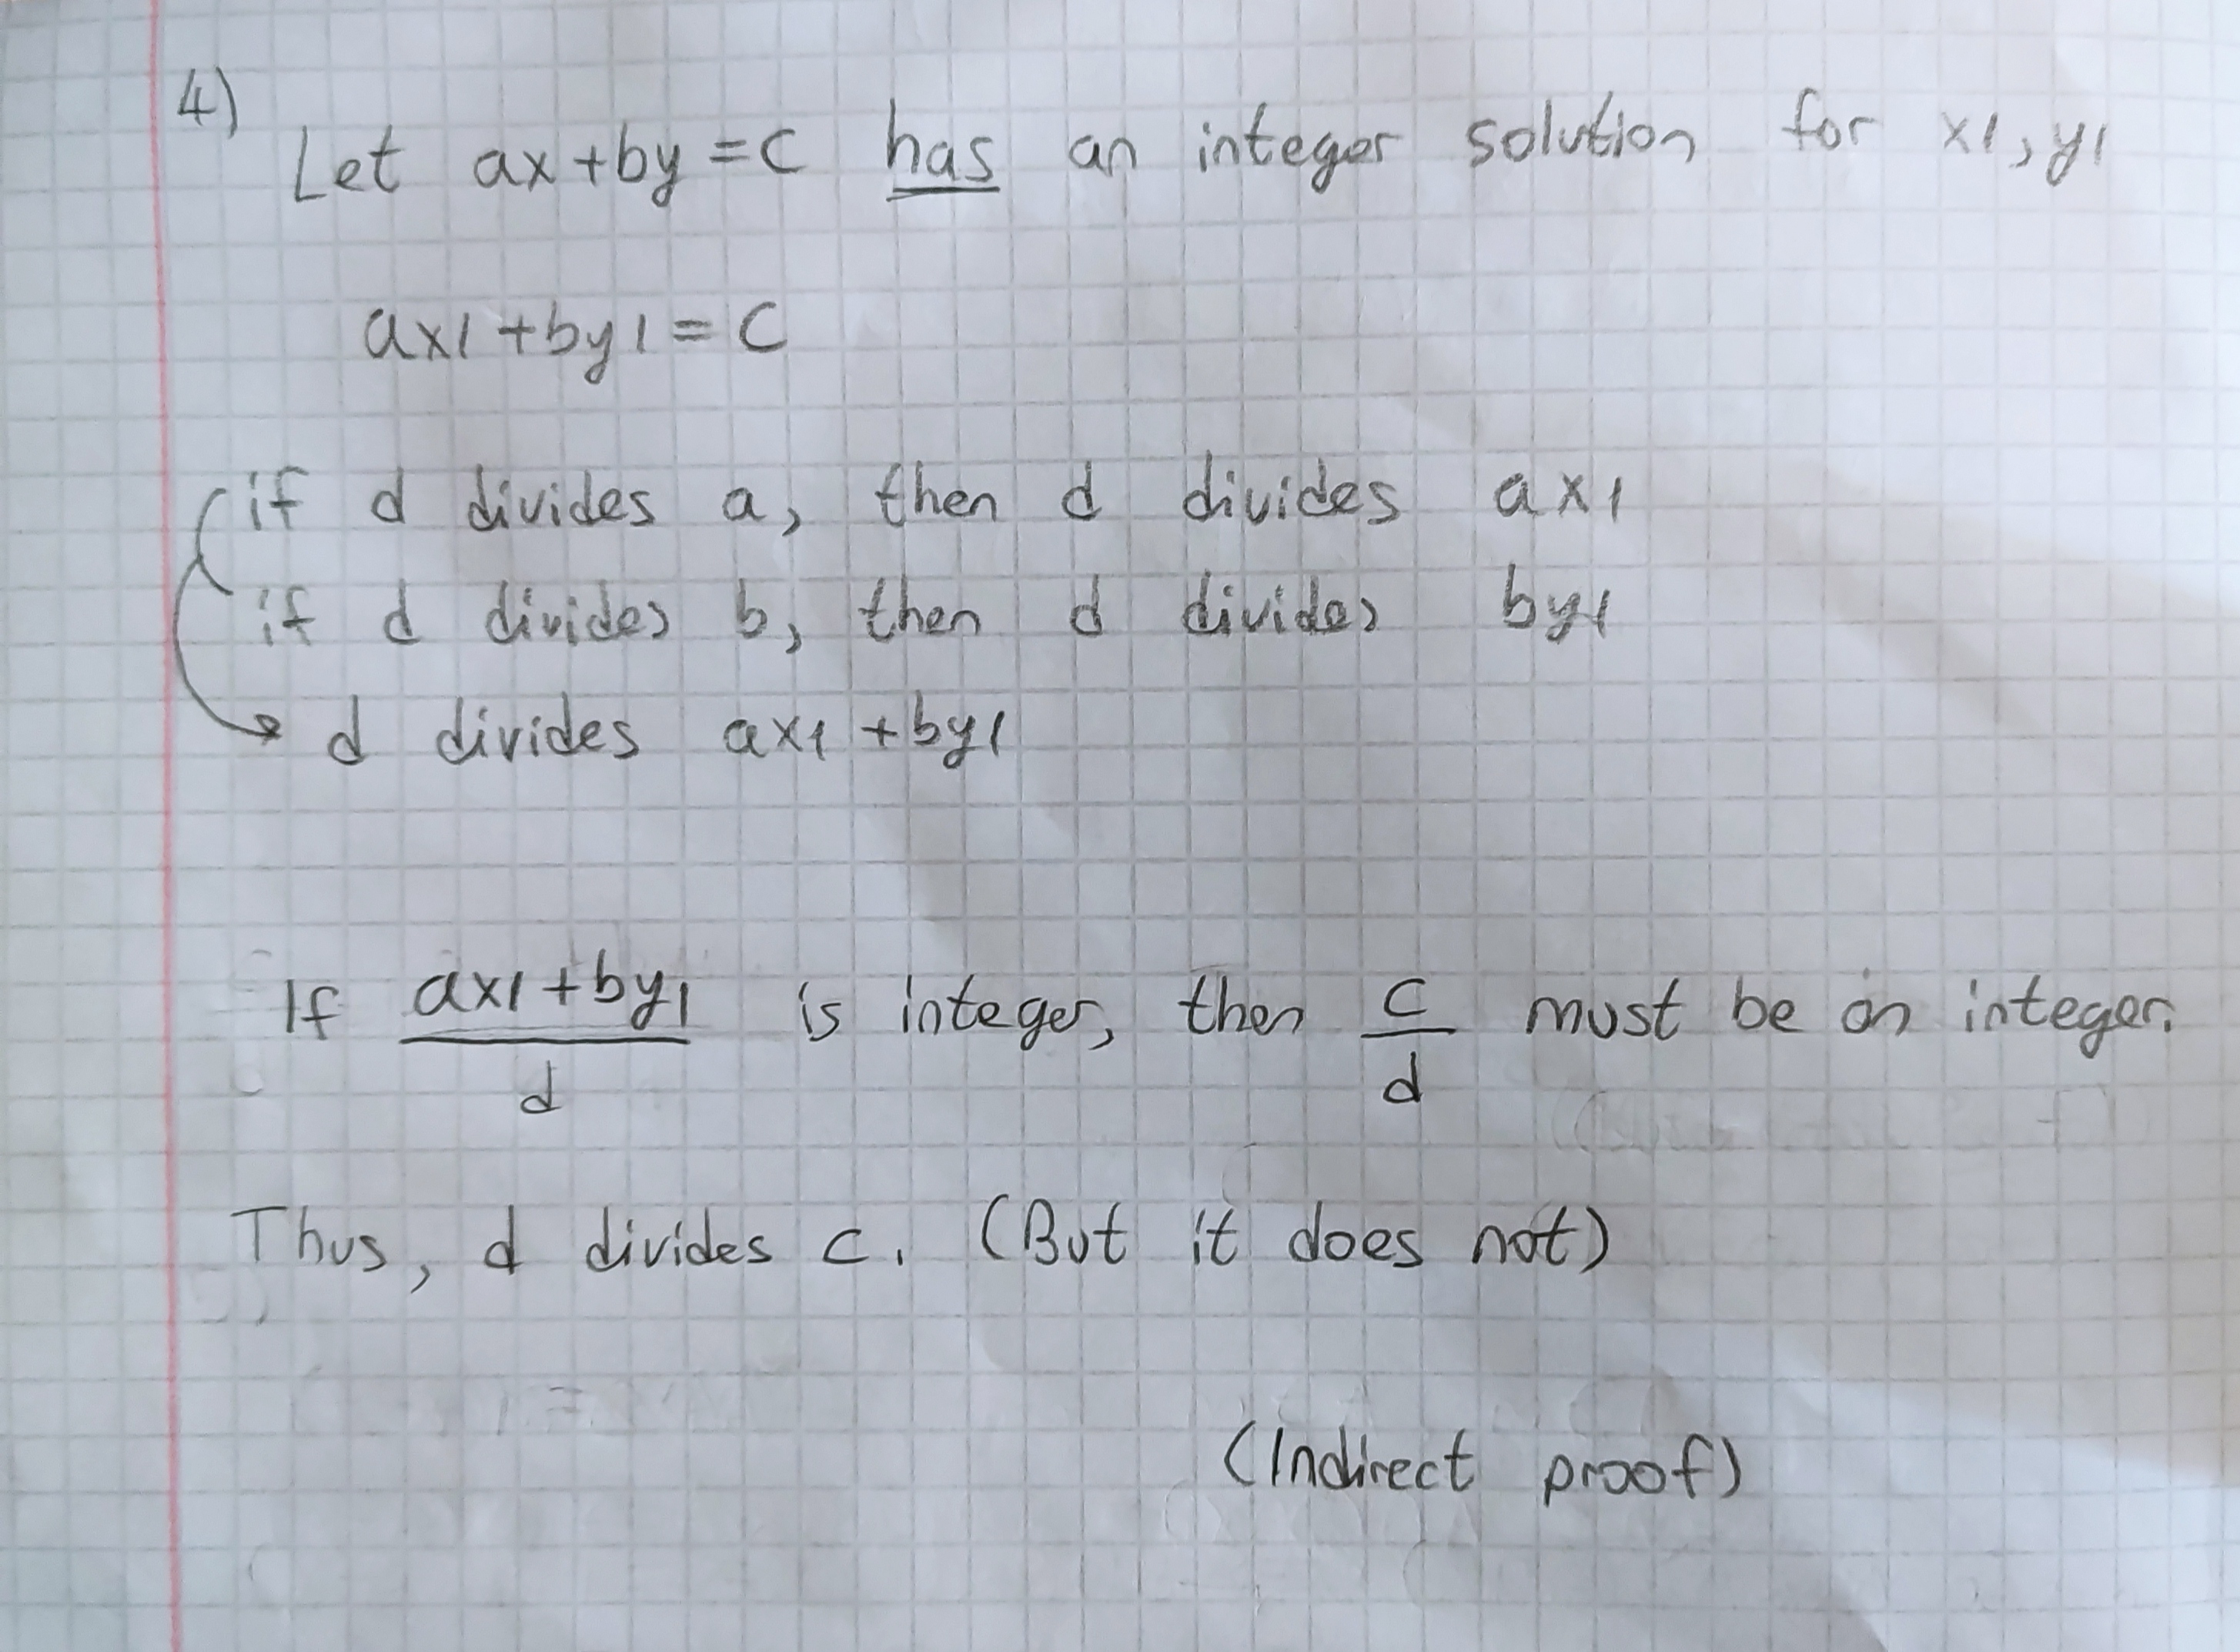 4)
Let ax+by=c has an integer solution for x1, y1
ax1+by1=c
if d divides a, then d divides ax1
if d divides b, then d divides by1
d divides ax1+by1
If (ax1+by1)/d is integer, then c/d must be an integer.
Thus, d divides c. (But it does not)
(Indirect proof)